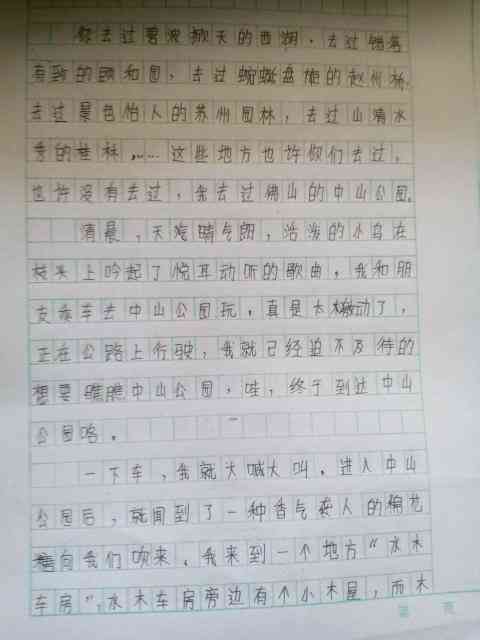 你去过碧波掀天的西湖，去过错落
有致的颐和园，去过蜿蜒盘旋的赵州桥，
去过景色怡人的苏州园林，去过山清水
秀的桂林，……这些地方也许你们去过，
也许没有去过，我去过佛山的中山公园。
清晨，天汽晴气朗，活泼的小鸟在
枝头上吟起了悦耳动听的歌曲，我和朋
友乘车去中山公园玩，真是太激动了，
正在公路上行驶，我就已经迫不及待的
想要瞧瞧中山公园，哇，终于到达中山
公园咯。
一下车，我就大喊大叫。进入中山
公园后，就闻到了一种香气袭人的棉花
向我们吹来。我来到一个地方“水木
车房”，水木车房旁边有个小木屋，而木